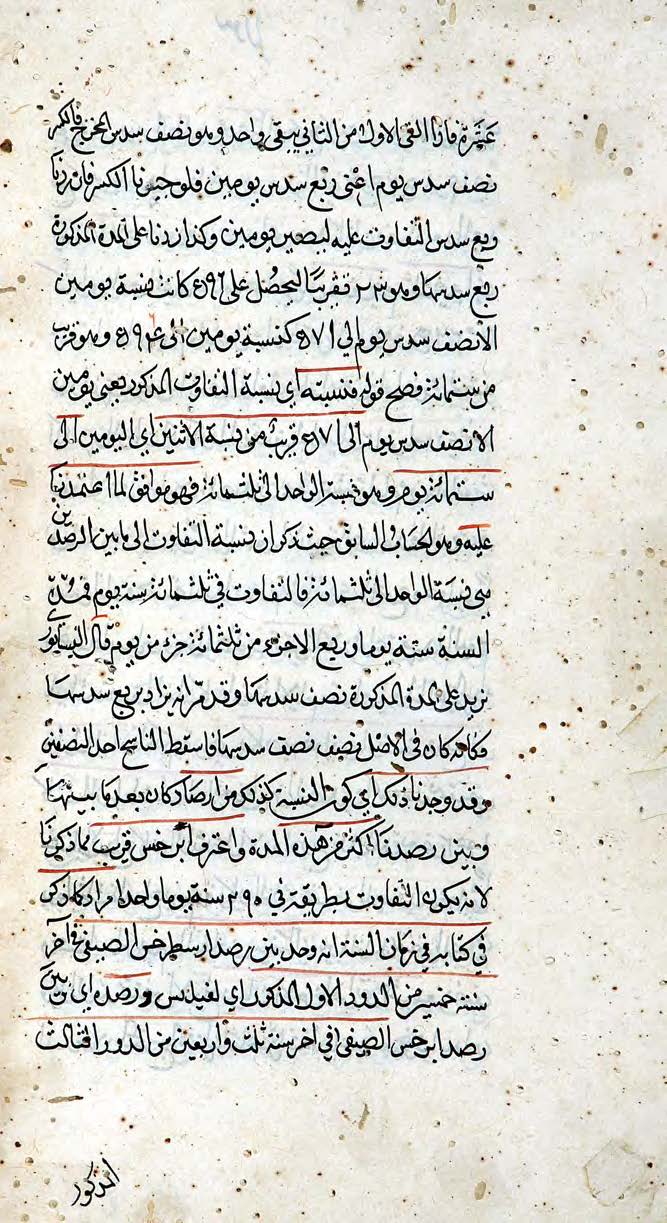 عشرة فاذا القى الاول من الثاني يبقى واحد وهو نصف سدس المخرج فالكسر
نصف سدس يوم اعني ربع سدس يومين فلو جبرنا الكسر فان زدنا
ربع سدس التفاوت عليه ليصير يومين وكذا زدنا على المدة المذكورة
ربع سدسها وهو ٢٣ تقريبا ليحصل على ٥٩٤ كانت نسبة يومين
الا نصف سدس يوم الى ٥٧١ كنسبة يومين الى ٥٩٤ وهو قريب
من ستمائة فصح قوله فنسبته اي نسبة التفاوت المذكور يعني يومين
الا نصف سدس يوم الى ٥٧١ قريب من نسبة الاثنين اي اليومين الى
ستمائة يوم وهو نسبة الواحد الى ثلثمائة فهو موافق لما اعتمدنا
عليه وهو الحساب السابق حيث ذكر ان نسبة التفاوت الى ما بين الرصدين
هي نسبة الواحد الى ثلثمائة فالتفاوت في ثلثمائة سنة يوم فمدة
السنة ستة يوما وربع الا جزء من ثلثمائة جزء من يوم قال النيسابوري
نزيد على المدة المذكورة نصف سدسها وقد مر انه يزاد ربع سدسها
فكانه كان في الاصل نصف نصف سدسها فاسقط الناسخ احد النصفين
وقد وجدنا ذلك اي كون النسبة كذلك من ارصاد كان بعد ما بينها
وبين رصدنا اكثر من هذه المدة واعترف ابرخس قريب مما ذكرنا
لانه يكون التفاوت بطريقته في ٢٩٠ سنة يوما واحدا مراد كما ذكر
في كتابه في زمان السنة انه وجد بين رصد ارسطرخس الصيفي في آخر
سنة خمسين من الدور الاول المذكور اي لفيلبس ورصده اي وبين
رصد ابرخس الصيفي في آخر سنة ثلث واربعين من الدور الثالث
المذكور